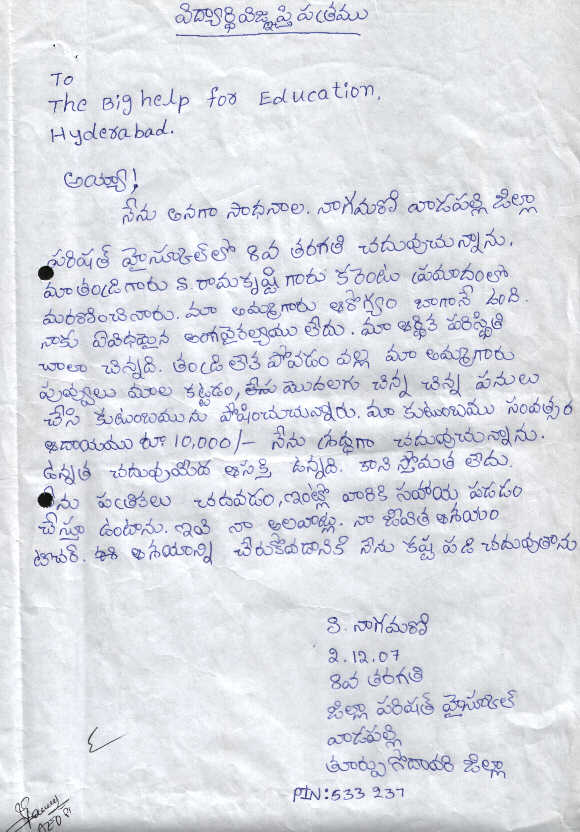 విద్యార్థి విజ్ఞప్తి పత్రము
To
The Big help for Education,
Hyderabad.
అయ్యా!
నేను అనగా సాధనాల. నాగమణి వాడపల్లి జిల్లా
పరిషత్ హైస్కూల్ లో 8వ తరగతి చదువుచున్నాను.
మా తండ్రిగారు S. రామకృష్ణ గారు కరెంటు ప్రమాదంలో
మరణించినారు. మా అమ్మగారు ఆరోగ్యం బాగానే ఉంది.
నాకు ఏవిధమైన అంగవైకల్యాయు లేదు. మా ఆర్థిక పరిస్థితి
చాలా చిన్నది. తండ్రి లేక పోవడం వల్ల మా అమ్మగారు
పువ్వులు మాల కట్టడం, మొదలగు చిన్న చిన్న పనులు
చేసి కుటుంబమును పోషించుచున్నారు. మా కుటుంబము సంవత్సర
ఆదాయము రూ 10,000/- నేను శ్రద్ధగా చదువుచున్నాను.
ఉన్నత చదువుమీద ఆసక్తి ఉన్నది. కాని స్తోమత లేదు.
నేను పత్రికలు చదవడం, ఇంట్లో వారికి సహాయ పడడం
చేస్తూ ఉంటాను. ఇవి నా అలవాట్లు. నా జీవిత ఆశయం
టీచర్. ఈ ఆశయాన్ని చేరుకోవడానికి నేను కష్ట పడి చదువుతాను
S. నాగమణి
2.12.07
8వ తరగతి
జిల్లా పరిషత్ హైస్కూల్
వాడపల్లి
తూర్పుగోదావరి జిల్లా
PIN: 533 237